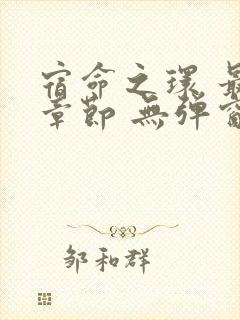 宿命之環 最
章節 無彈窗
邹和群